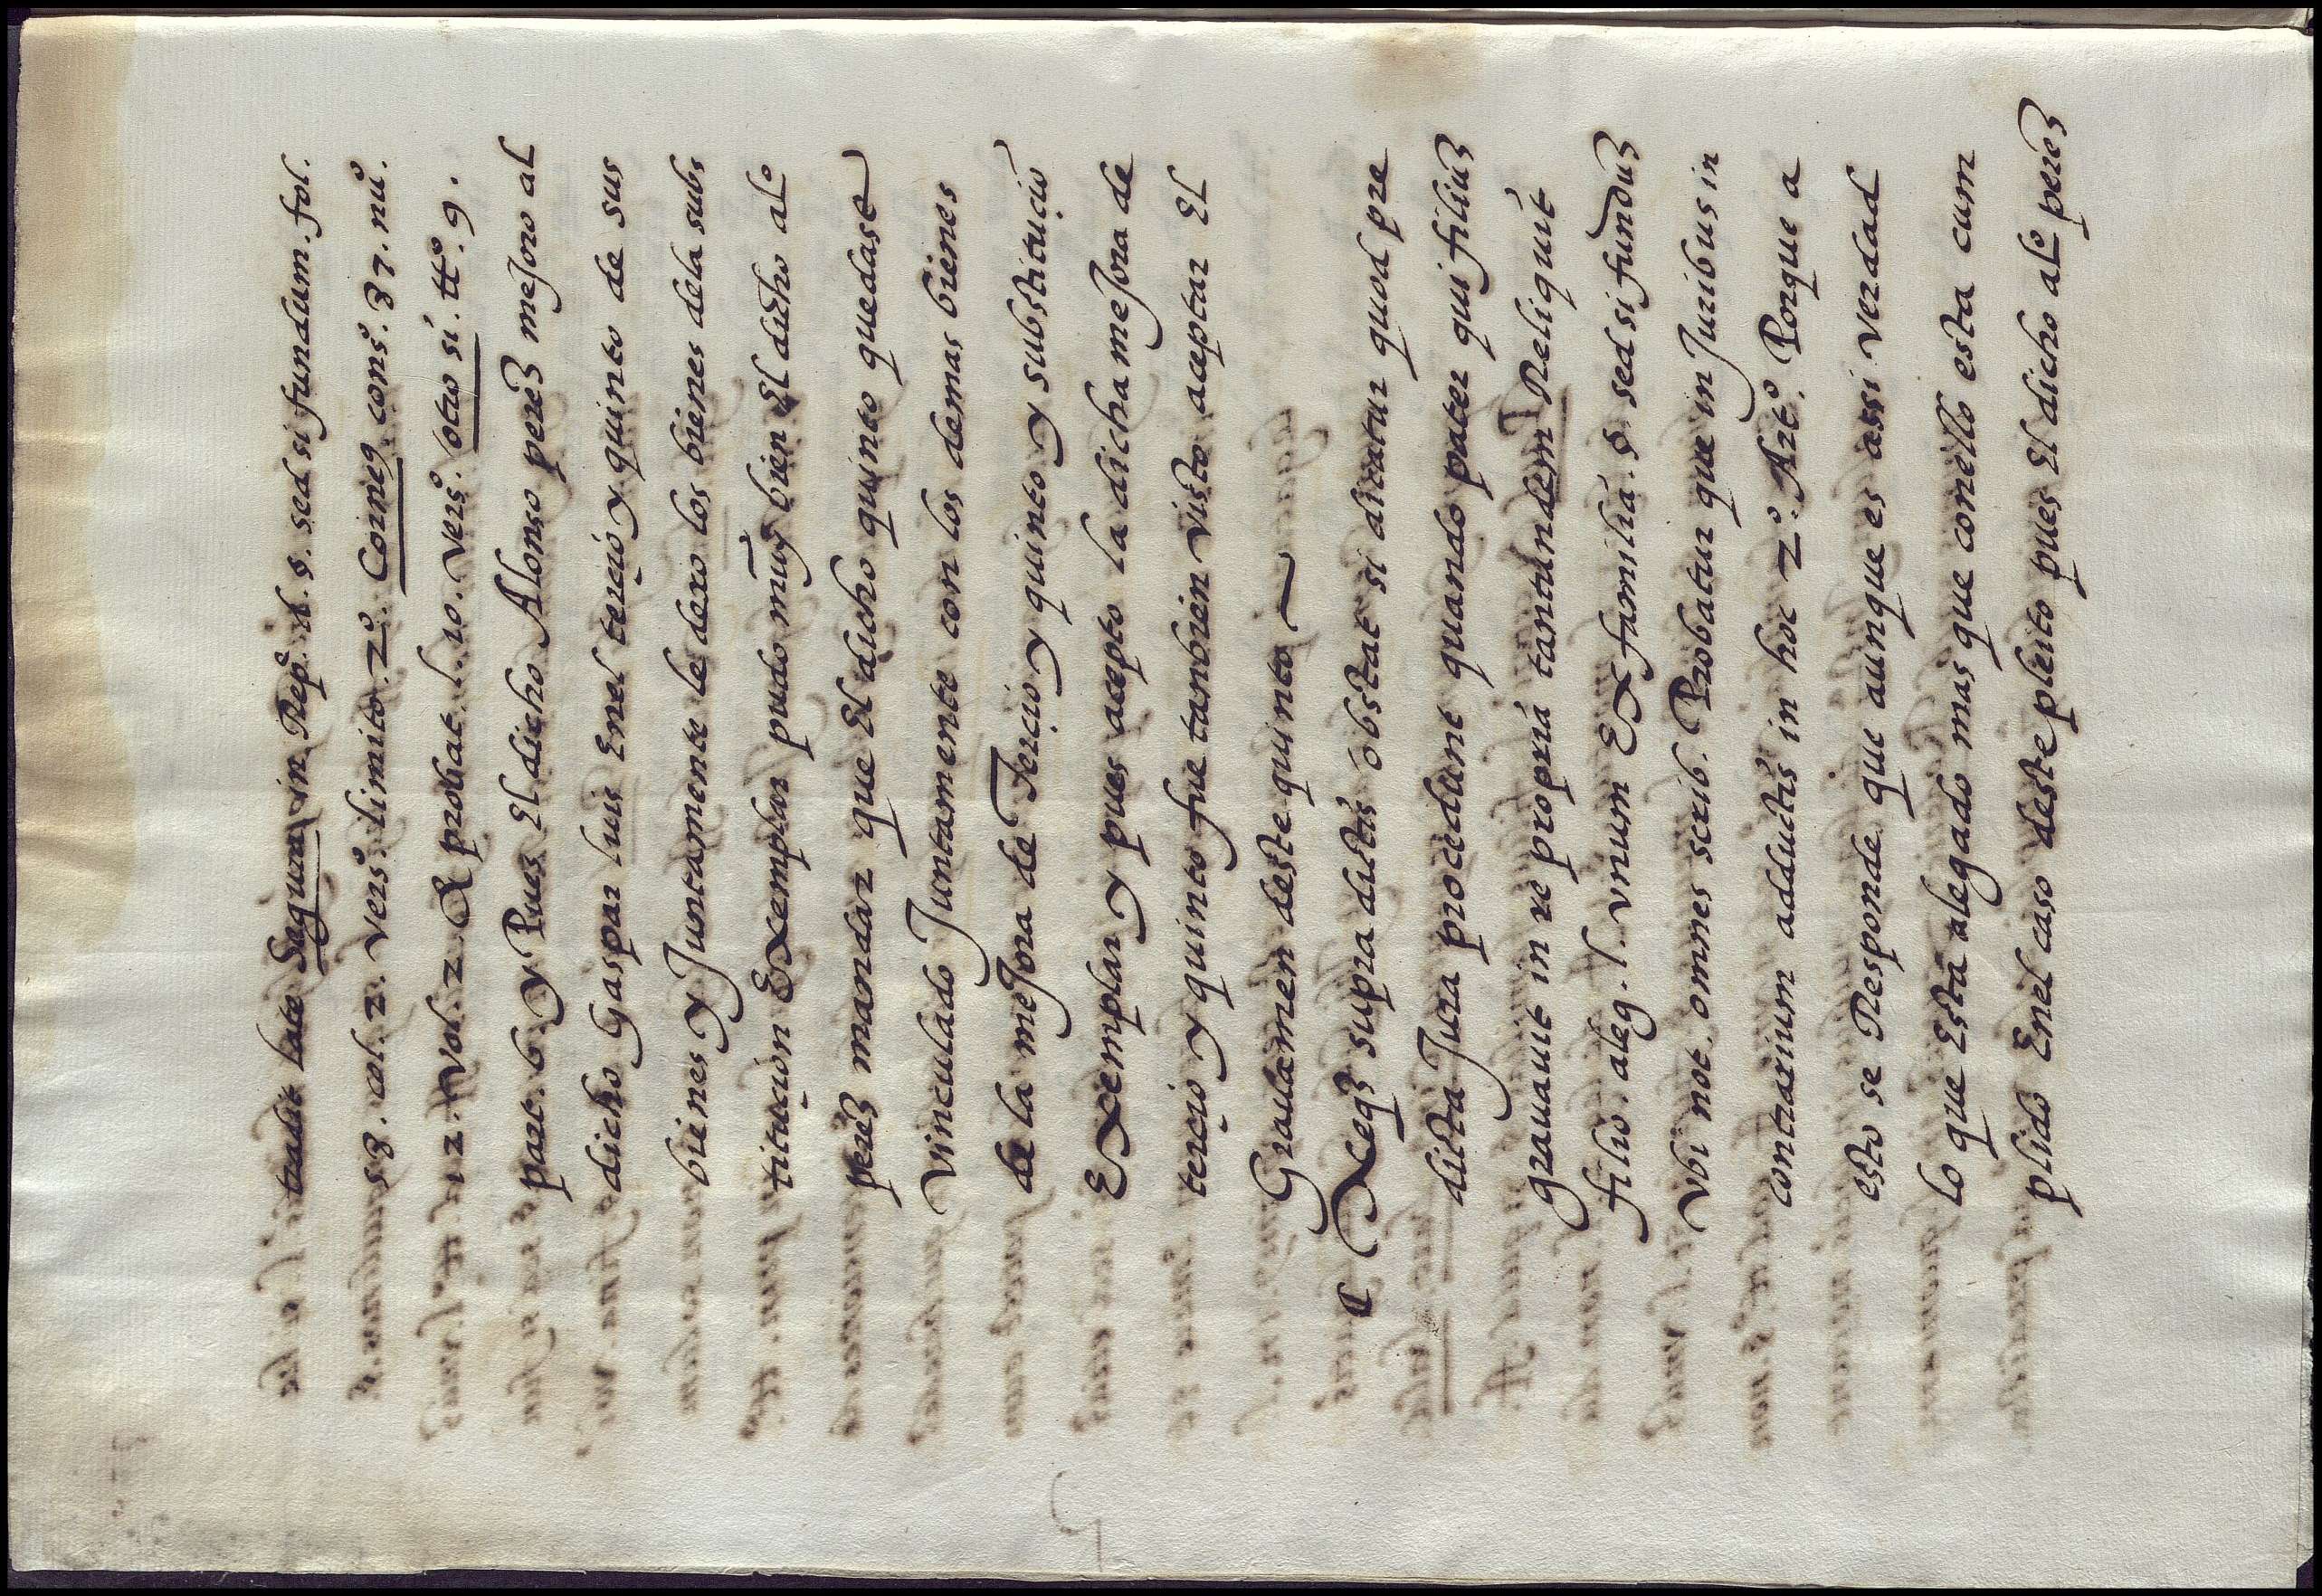 tradit late Segura in Rep.e d. §. sed si fundum. fol.
58. col. 2. verso. limito. 2o. Corneg. cons.o 37. nu.o
12. vol. 2. & probat. l. 10. verso. otro si. tto. 9.
part. 6. y Pues El dicho Alonso perez meJoro al
dicho Gaspar luis Enel tercio y quinto de sus
bienes y Juntamente le dexo los bienes dela subs
titucion Exemplar pudo muy bien El dicho alo
perez mandar que El dicho quinto quedase
vinculado Juntamente con los demas bienes
de la meJora de Tercio y quinto y substitucio
Exemplar y pues acepto la dicha meJora de
tercio y quinto fue tanbien visto aceptar El
Grauamen deste quinto
¶ Necq3 supra dictis obstat si dicatur quod pre
dicta Jura procedunt quando pater qui filiu3
grauauit in re propria tantundem Reliquit
filio. aleg. l. vnum Ex familia. §. sed si fundu3
vbi not. omnes scrib. Probatur que in Juribus in
contrarium adductis in hoc 2o. Arto. Porque a
esto se Responde que aunque es assi verdad
lo que Esta alegado mas que conello esta cum
plido Enel caso deste pleito pues El dicho alo perez